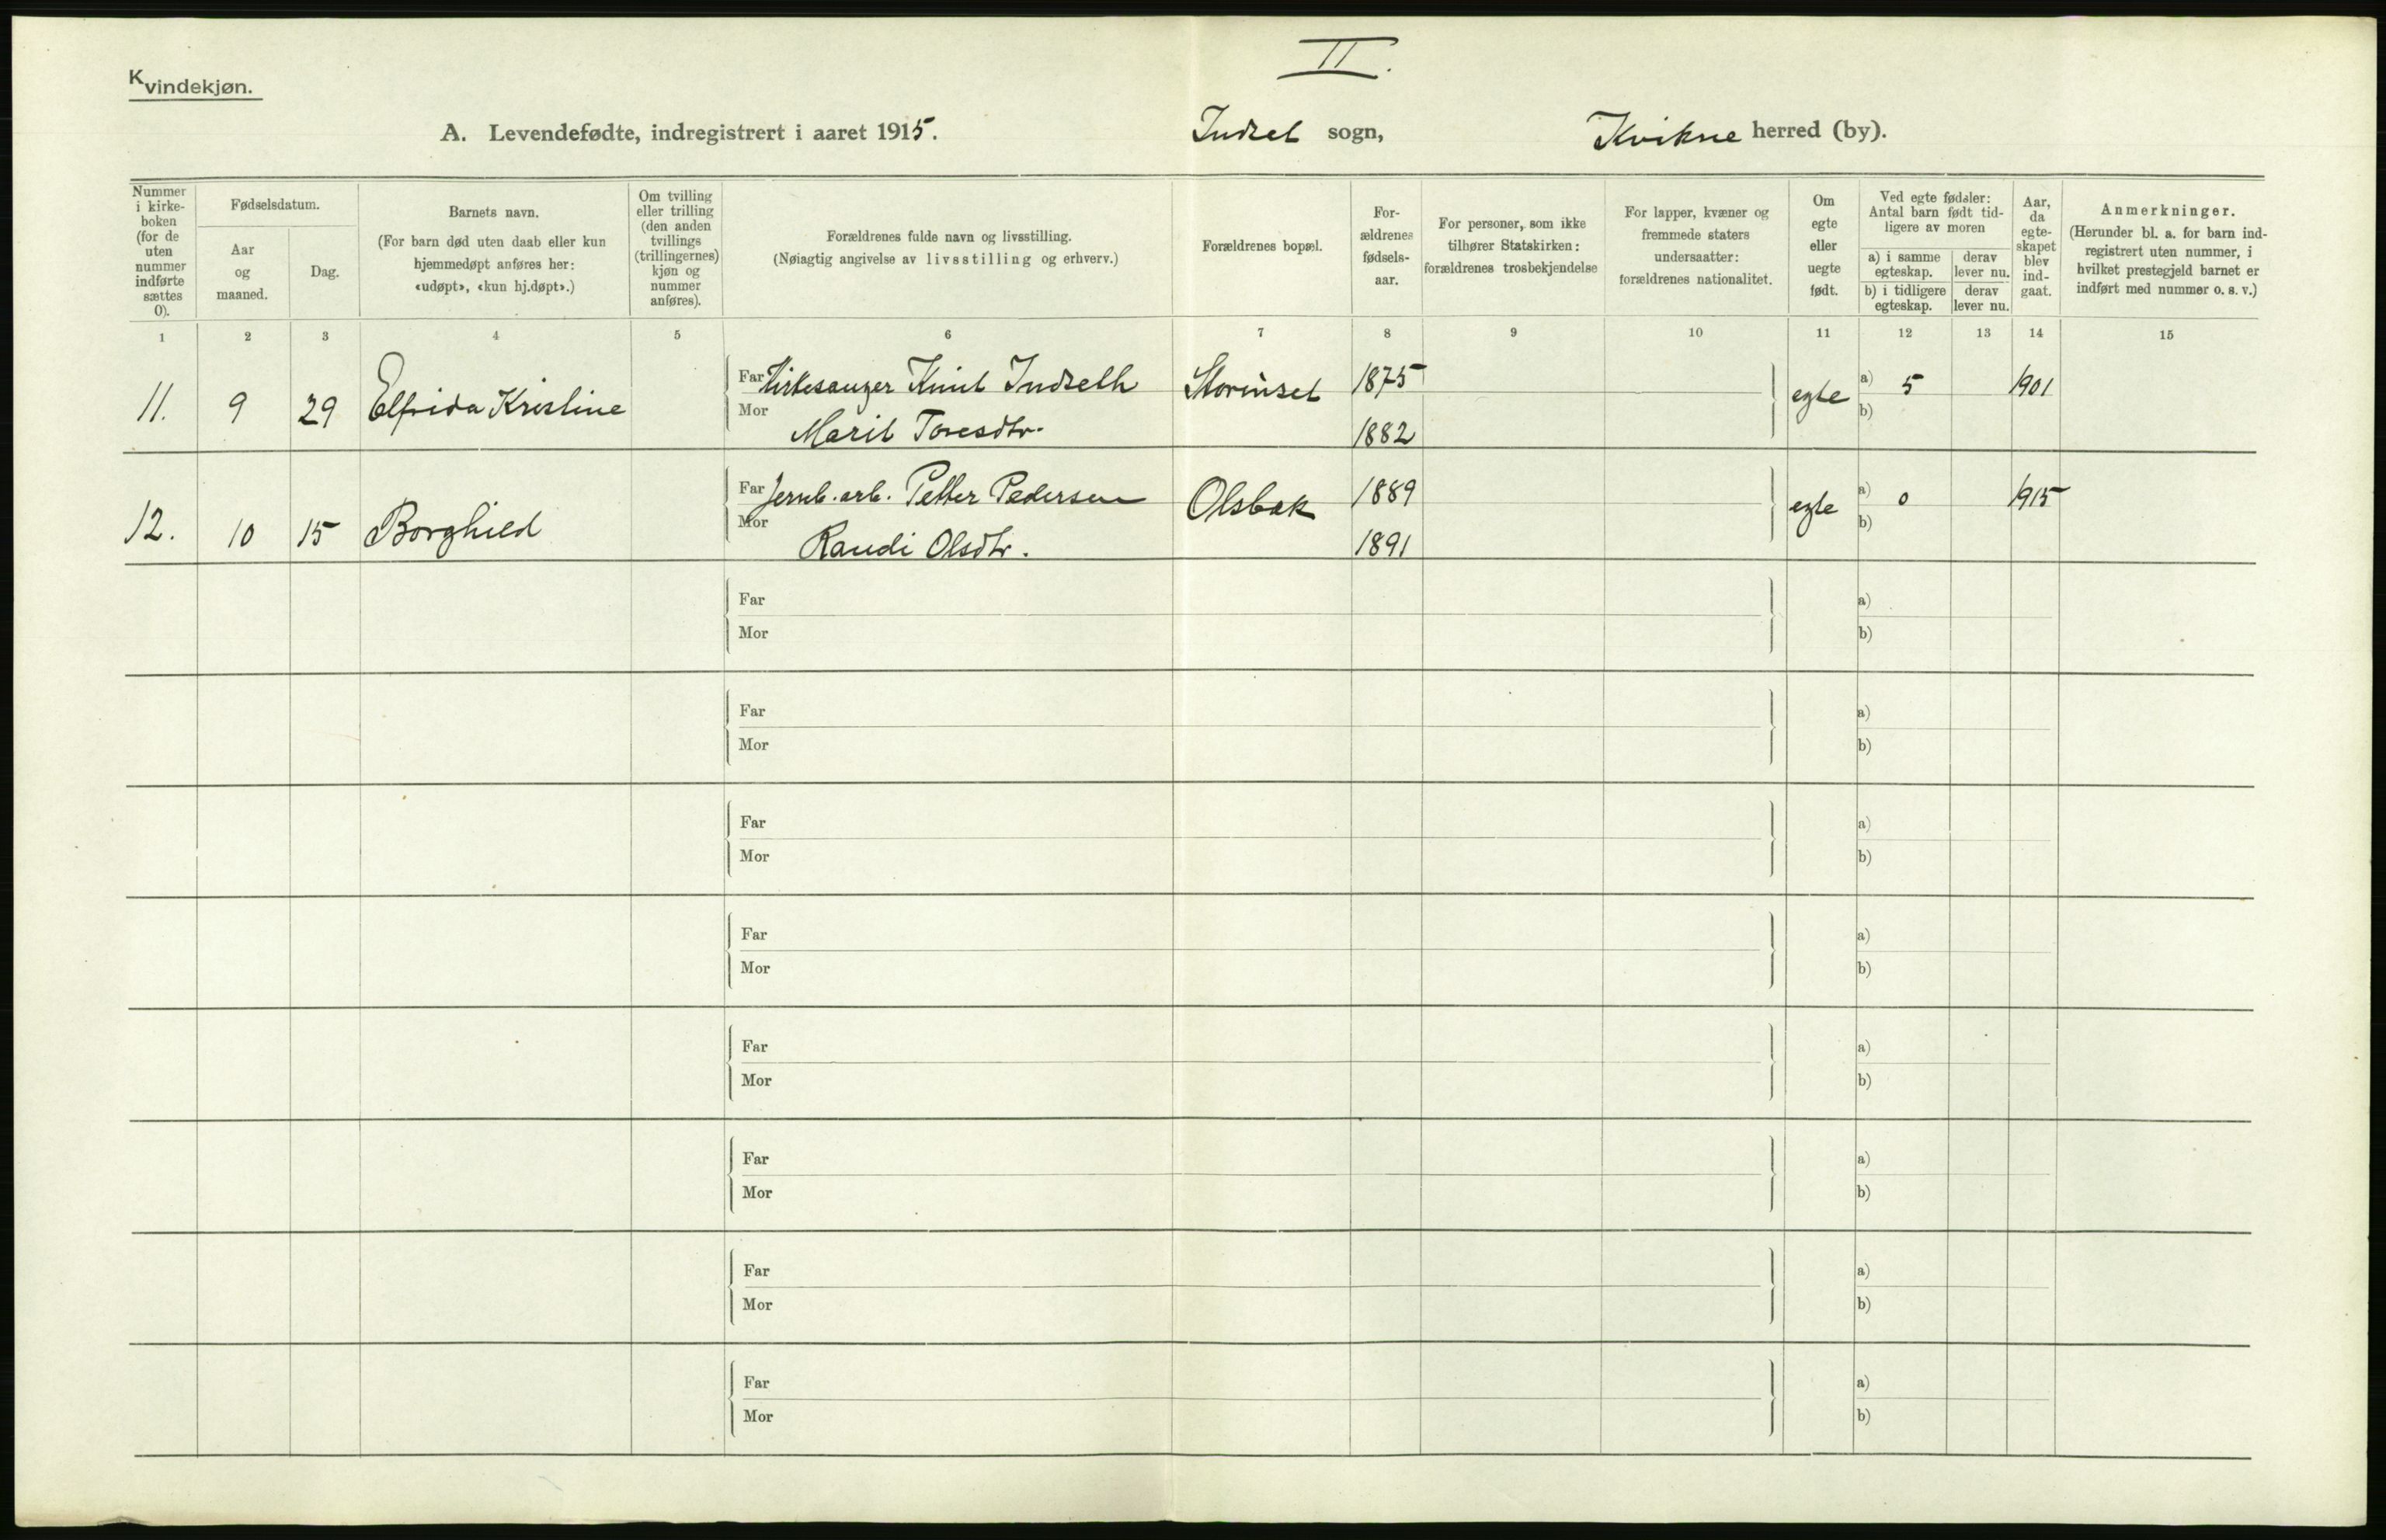 II.
Kvindekjøn.
A. Levendefødte, indregistrert i aaret 1915. Indset sogn, Kvikne herred (by).
Nummer i kirke-boken (for de uten nummer indførte sættes 0).
Fødselsdatum.
Aar og maaned.
Dag.
Barnets navn.
(For barn død uten daab eller kun hjemmedøpt anføres her: «udøpt», «kun hj.døpt».)
Om tvilling eller trilling (den anden tvillings (trillingernes) kjøn og nummer anføres).
Forældrenes fulde navn og livsstilling.
(Nøiagtig angivelse av livsstilling og erhverv.)
Forældrenes bopæl.
For-ældrenes fødsels-aar.
For personer, som ikke tilhører Statskirken: forældrenes trosbekjendelse
For lapper, kvæner og fremmede staters undersaatter: forældrenes nationalitet.
Om egte eller uegte født.
Ved egte fødsler: Antal barn født tid-ligere av moren
a) i samme egteskap.
derav lever nu.
b) i tidligere egteskap.
derav lever nu.
Aar, da egte-skapet blev ind-gaat.
Anmerkninger.
(Herunder bl. a. for barn ind-registrert uten nummer, i hvilket prestegjeld barnet er indført med nummer o. s. v.)
1 2 3 4 5 6 7 8 9 10 11 12 13 14 15
11. 9 29 Elfrida Kristine Far Kirkesanger Knut Indseth Storinset 1875 egte a) 5 1901
Mor Marit Toresdtr. 1882 b)
12. 10 15 Borghild Far Jernb. arb. Petter Pedersen Olsbak 1889 egte a) 0 1915
Mor Randi Olsdtr. 1891 b)
Far a)
Mor b)
Far a)
Mor b)
Far a)
Mor b)
Far a)
Mor b)
Far a)
Mor b)
Far a)
Mor b)
Far a)
Mor b)
Far a)
Mor b)